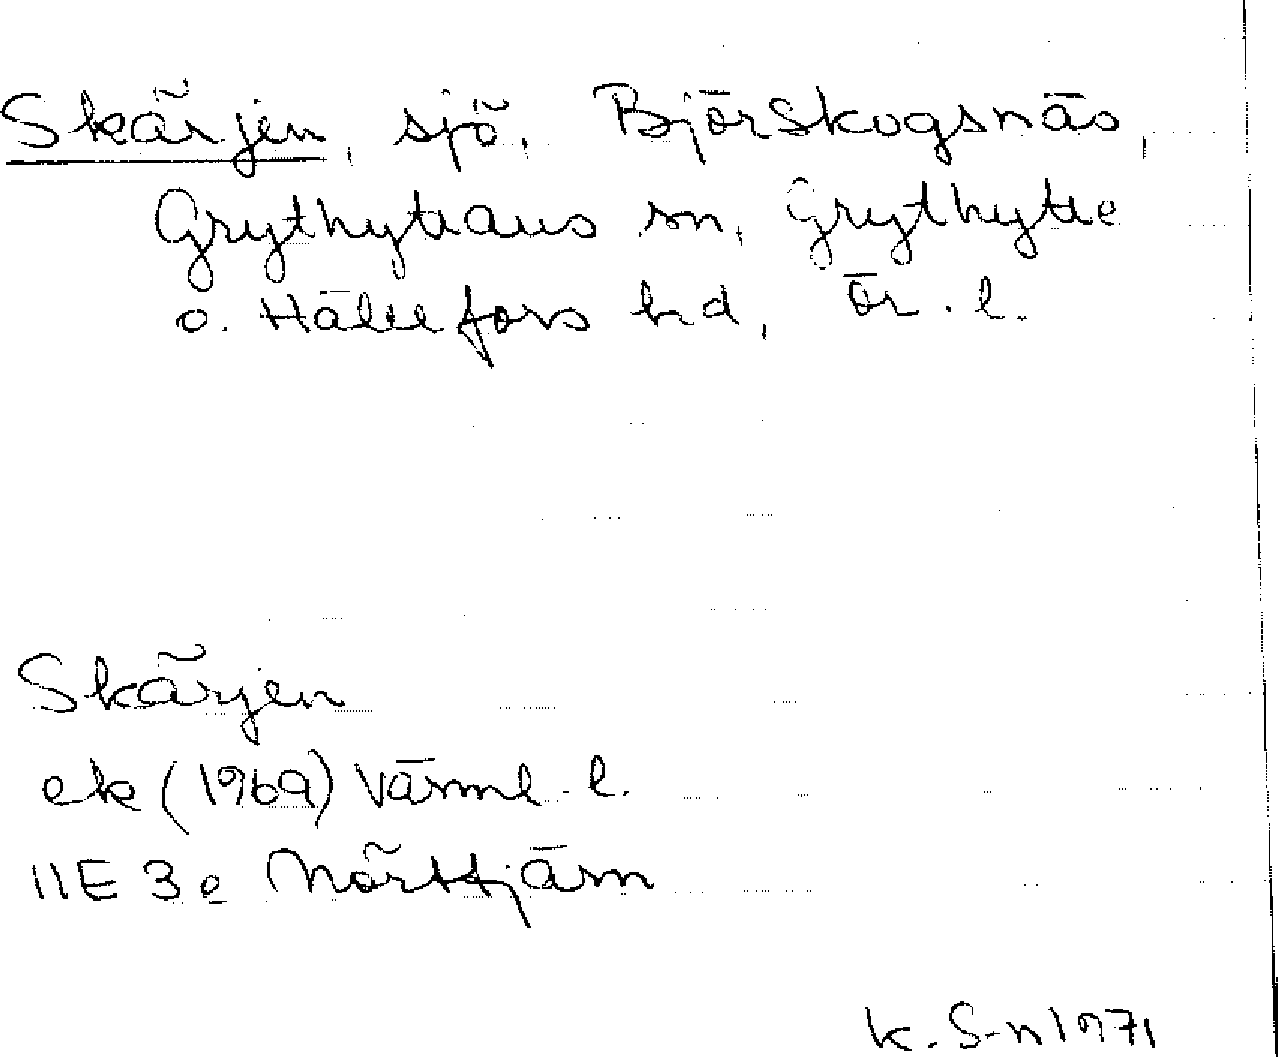 Skärjen, sjö, Björskogsnäs,
Grythyttans sn, Grythytte
o. Hällefors hd, Ör. l.
Skärjen
ek (1969) Värml. l.
11E 3e Mörttjärn
K. S-n 1971